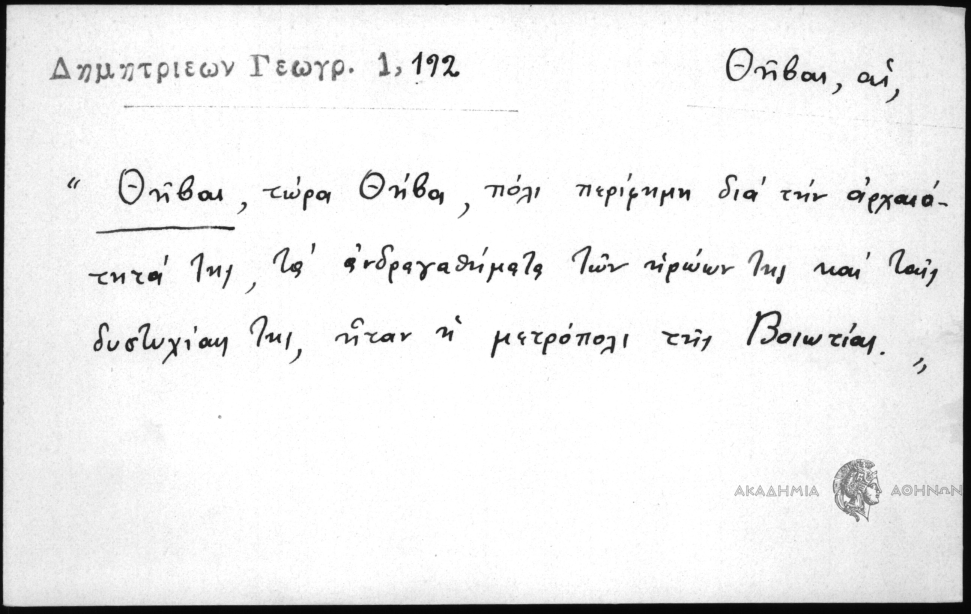 Δημητριεων Γεωγρ. 1, 192
Θῆβαι, αἱ,
“ Θῆβαι, τώρα Θήβα, πόλι περίφημη διά τήν ἀρχαιό-
τητά της, τά ἀνδραγαθήματα τῶν ἡρώων της καί ταῖς
δυστυχίαις της, ἦταν ἡ μετρόπολι τῆς Βοιωτίας. „
ΑΚΑΔΗΜΙΑ ΑΘΗΝΩΝ